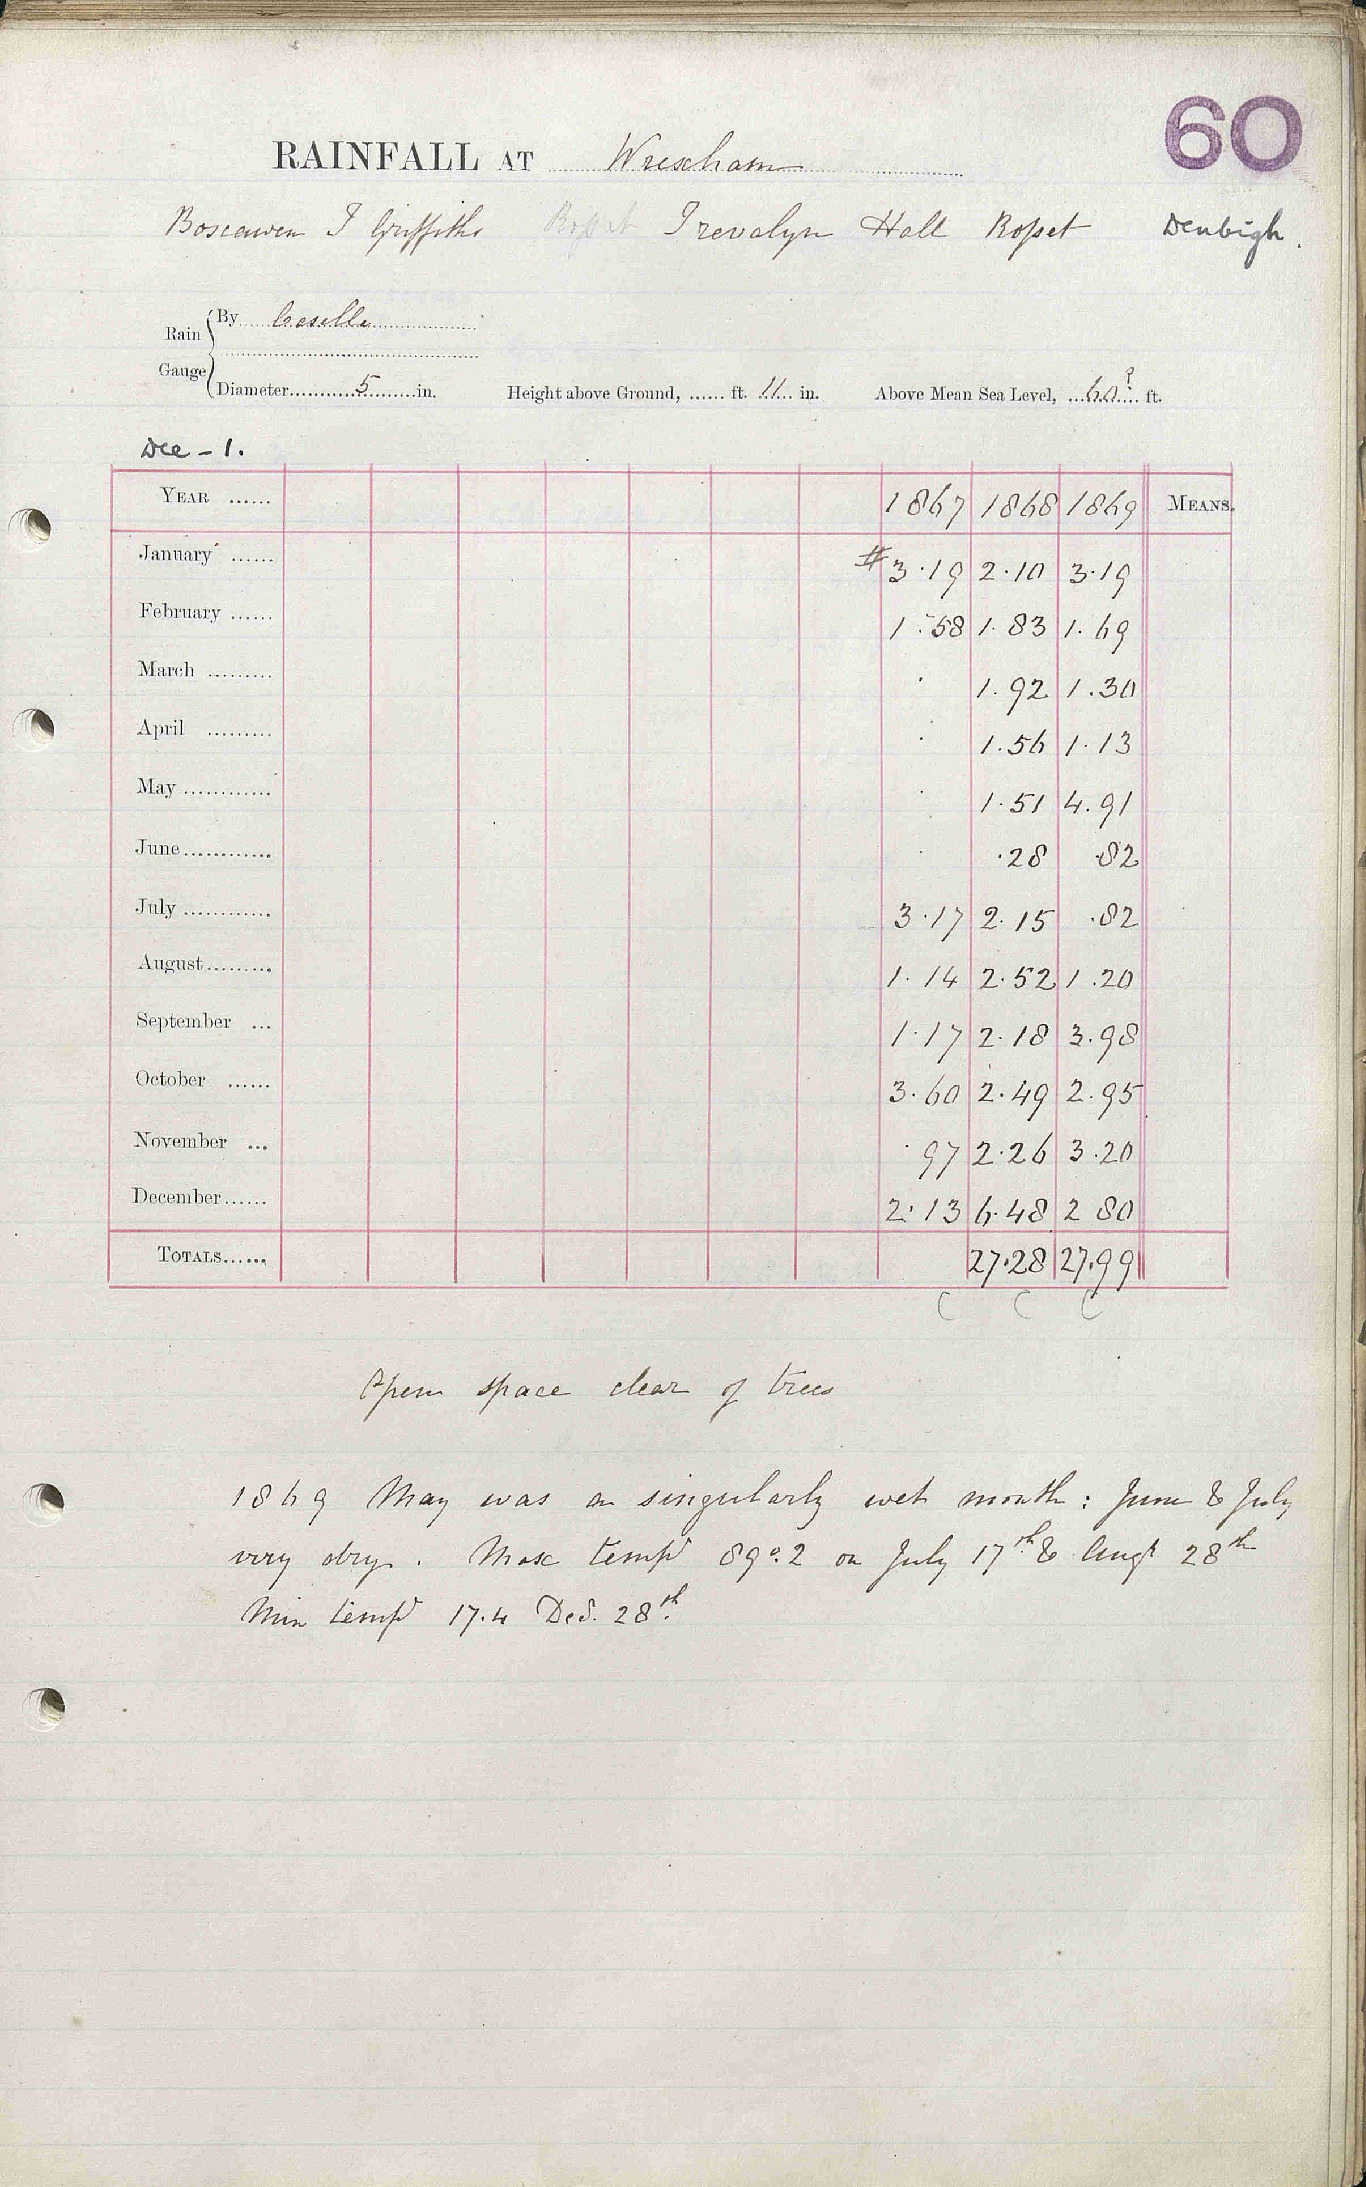 60
RAINFALL AT Wrexham
Boscawen T Griffiths Rosset Trevalyn Hall Rosset Denbigh.
Rain Gauge
By Casella
Diameter............5.........in. Height above Ground, ...... ft. 11 in. Above Mean Sea Level, ...60?... ft.
Dee - 1.
YEAR ...... 1867 1868 1869 MEANS.
January ...... # 3.19 2.10 3.19
February ...... 1.58 1.83 1.69
March ......... . 1.92 1.30
April ......... . 1.56 1.13
May ............ . 1.51 4.91
June............ . .28 .82
July ............ 3.17 2.15 .82
August......... 1.14 2.52 1.20
September ... 1.17 2.18 3.98
October ...... 3.60 2.49 2.95
November ... .97 2.26 3.20
December...... 2.13 6.48 2 80
TOTALS...... 27.28 27.99
Open space clear of trees
1869 May was a singularly wet month : June & July
very dry . Max temp 89°.2 on July 17th & Augt 28th
Min temp 17.4 Dec. 28th